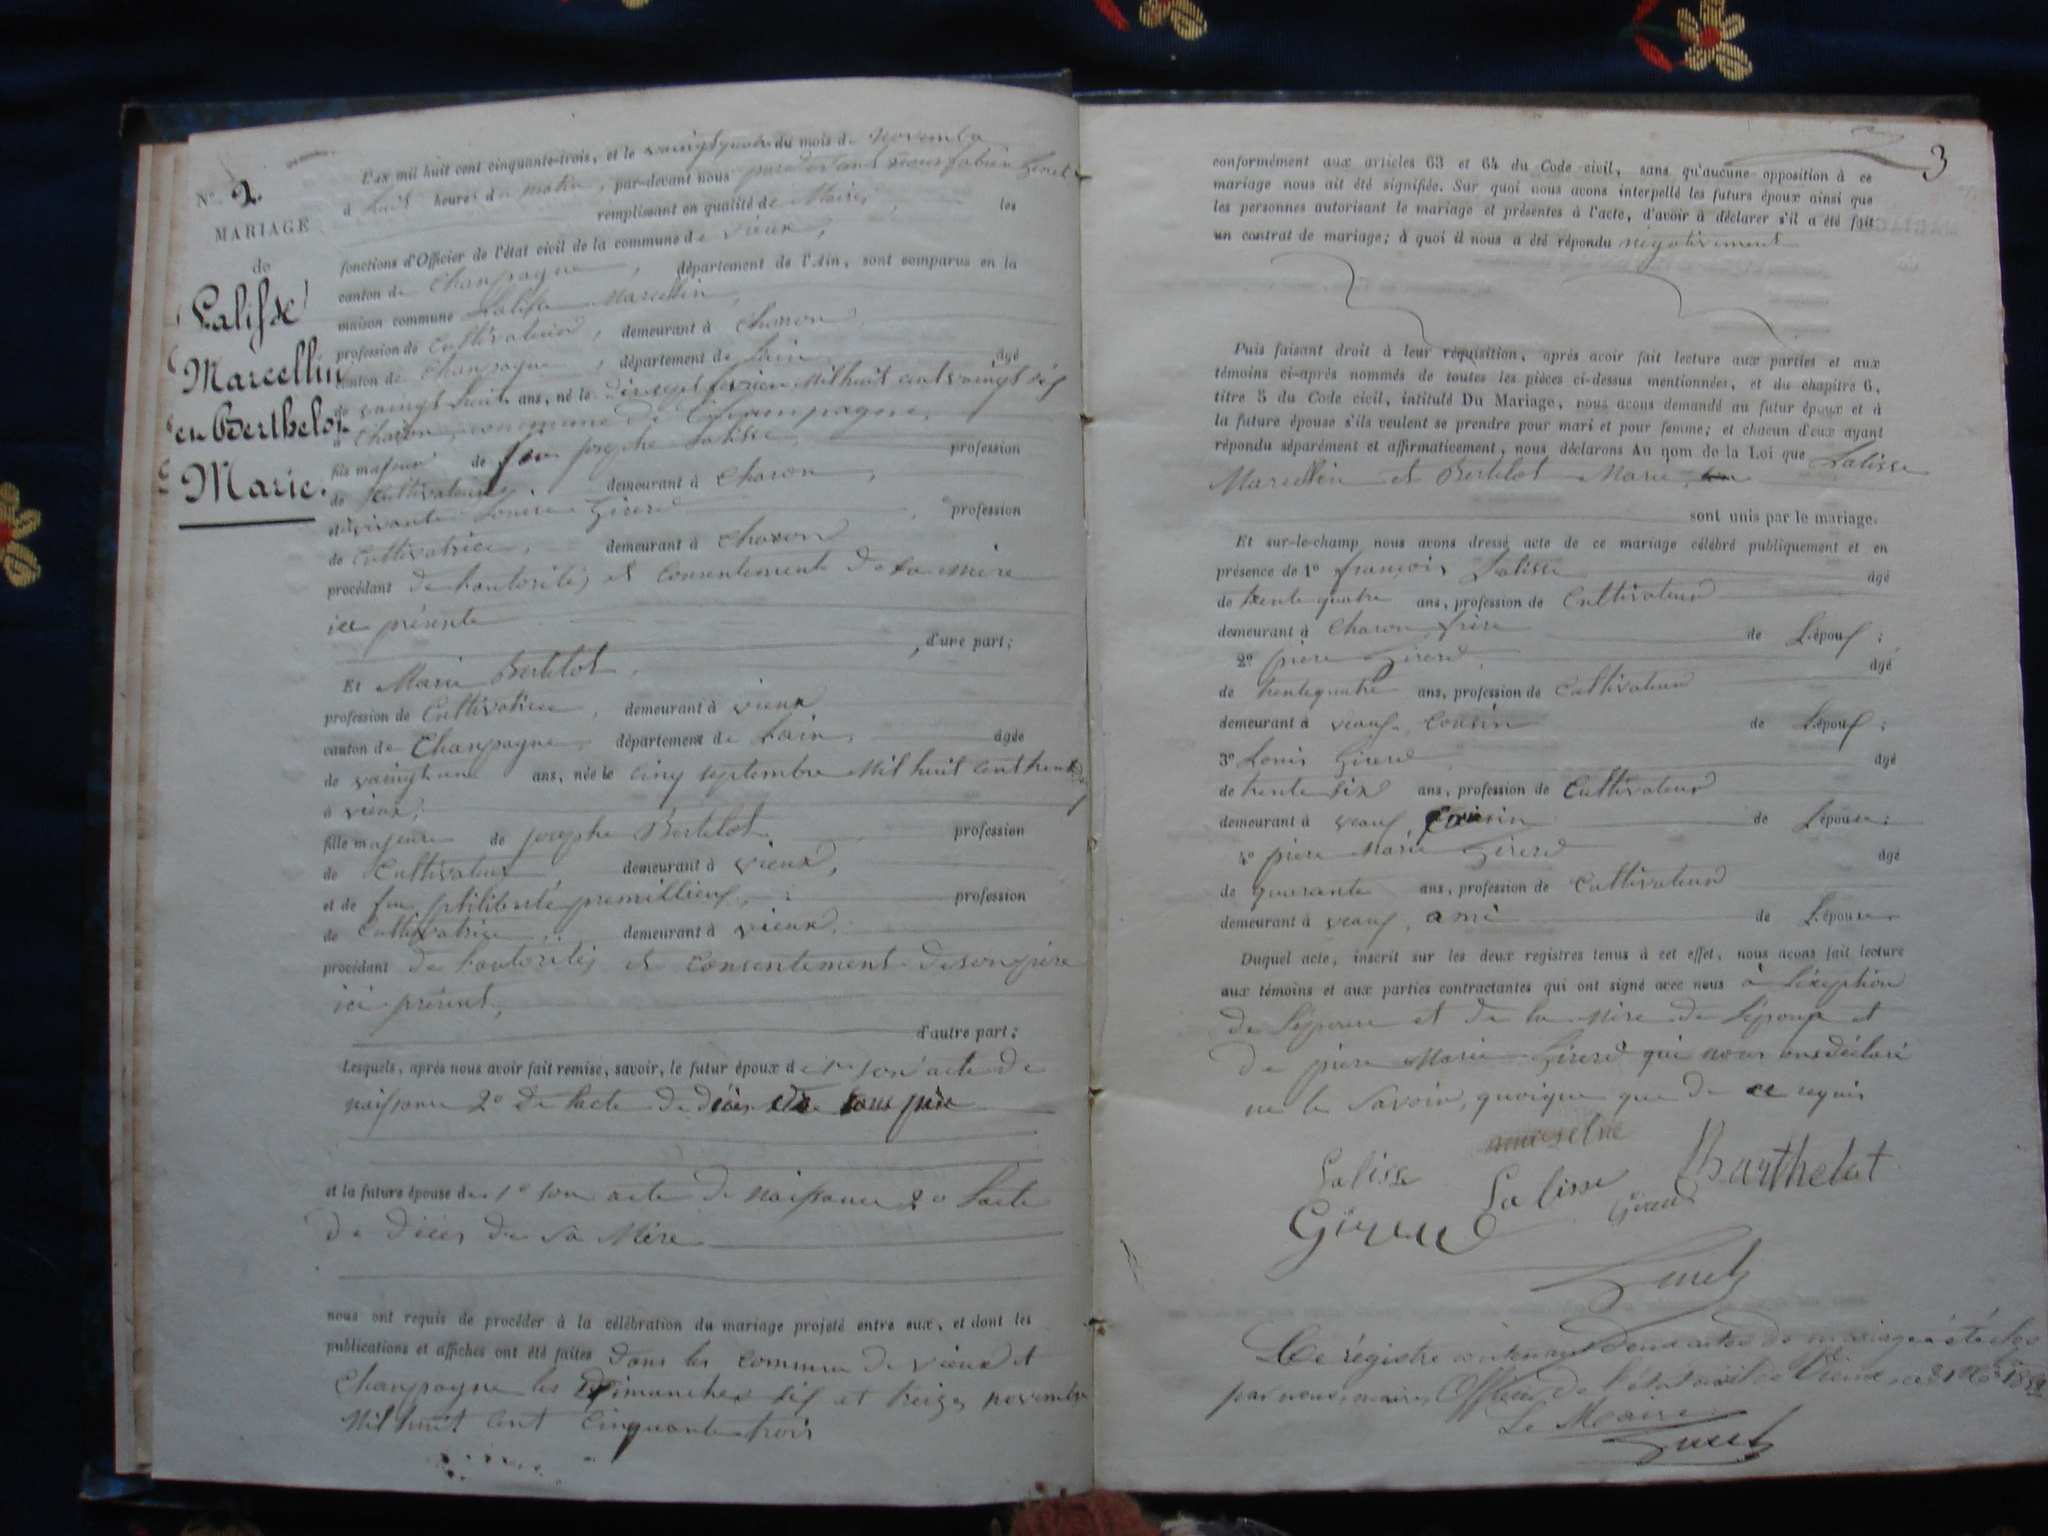 N°. 2.
MARIAGE
de
Lalisse
Marcellin
et Berthelot
Marie.
L'an mil huit cent cinquante-trois, et le vaingt quatre du mois de novembre
à huit heures du matin, par-devant nous
remplissant en qualité de Maire, les
fonctions d'Officier de l'état civil de la commune de vieux,
canton de Champagne, département de l'Ain, sont comparus en la
maison commune Lalisse Marcellin,
profession de Cultivateur, demeurant à Charon
canton de Champagne, département de Lain, âgé
de vaingt huit ans, né le dix sept fevrier Mil huit cent vaingt six
à Charon, commune de Champagne,
fils majeur de feu josephe Lalisse, profession
de Cultivateur, demeurant à Charon,
et de vivante Louise Girerd, profession
de Cultivatrice, demeurant à Charon
procédant de l'autorités et Consentement de sa mère
ici présente
d'une part;
Et Marie Bertelot,
profession de Cultivatrice, demeurant à vieux
canton de Champagne, département de Lain, âgée
de vaingt une ans, née le cinq septembre Mil huit cent trente
à vieux,
fille majeure de josephe Bertelot profession
de Cultivateur, demeurant à vieux,
et de feu philiberte premillieux, profession
de Cultivatrice, demeurant à vieux,
procédant de l'autorités et consentement de son père
ici présent,
d'autre part;
Lesquels, après nous avoir fait remise, savoir, le futur époux de 1° son acte de
naissance 2° de l'acte de décès de sous père
et la future épouse de 1° son acte de naissance 2° l'acte
de décès de sa Mère
nous ont requis de procéder à la célébration du mariage projeté entre eux, et dont les
publications et affiches ont été faites dans les commune de vieux et
Champagne les Dimanches six et treize novembre
Mil huit cent cinquante trois
3
conformément aux articles 63 et 64 du Code civil, sans qu'aucune opposition à ce
mariage nous ait été signifiée. Sur quoi nous avons interpellé les futurs époux ainsi que
les personnes autorisant le mariage et présentes à l'acte, d'avoir à déclarer s'il a été fait
un contrat de mariage; à quoi il nous a été répondu négativement
Puis faisant droit à leur réquisition, après avoir fait lecture aux parties et aux
témoins ci-après nommés de toutes les pièces ci-dessus mentionnées, et du chapitre 6,
titre 5 du Code civil, intitulé Du Mariage, nous avons demandé au futur époux et à
la future épouse s'ils veulent se prendre pour mari et pour femme; et chacun d'eux ayant
répondu séparément et affirmativement, nous déclarons Au nom de la Loi que Lalisse
Marcellin et Bertelot Marie
sont unis par le mariage.
Et sur-le-champ nous avons dressé acte de ce mariage célébré publiquement et en
présence de 1° françois Lalisse âgé
de trente quatre ans, profession de Cultivateur
demeurant à Charon, frère de L'époux;
2° piere Girerd, âgé
de trente quatre ans, profession de Cultivateur
demeurant à veaux, Cousin de L'époux;
3° Louis Girerd âgé
de trente six ans, profession de Cultivateur
demeurant à veaux Cousin de L'épouse;
4° piere Marie Girerd âgé
de quarante ans, profession de Cultivateur
demeurant à veaux, ami de L'épouse
Duquel acte, inscrit sur les deux registres tenus à cet effet, nous avons fait lecture
aux témoins et aux parties contractantes qui ont signé avec nous à L'exeption
de L'épouse et de la Mère de L'époux et
de piere Marie Girerd qui nous ons déclaré
ne le Savoir, quoique que de ce requis
Lalisse
Lalisse
Barthelot
Girerd
Girerd
Le régistre contenant deux actes de mariage a été clos
par nous, maire, Officier de l'état civil de Vieux, ce 31
Le Maire